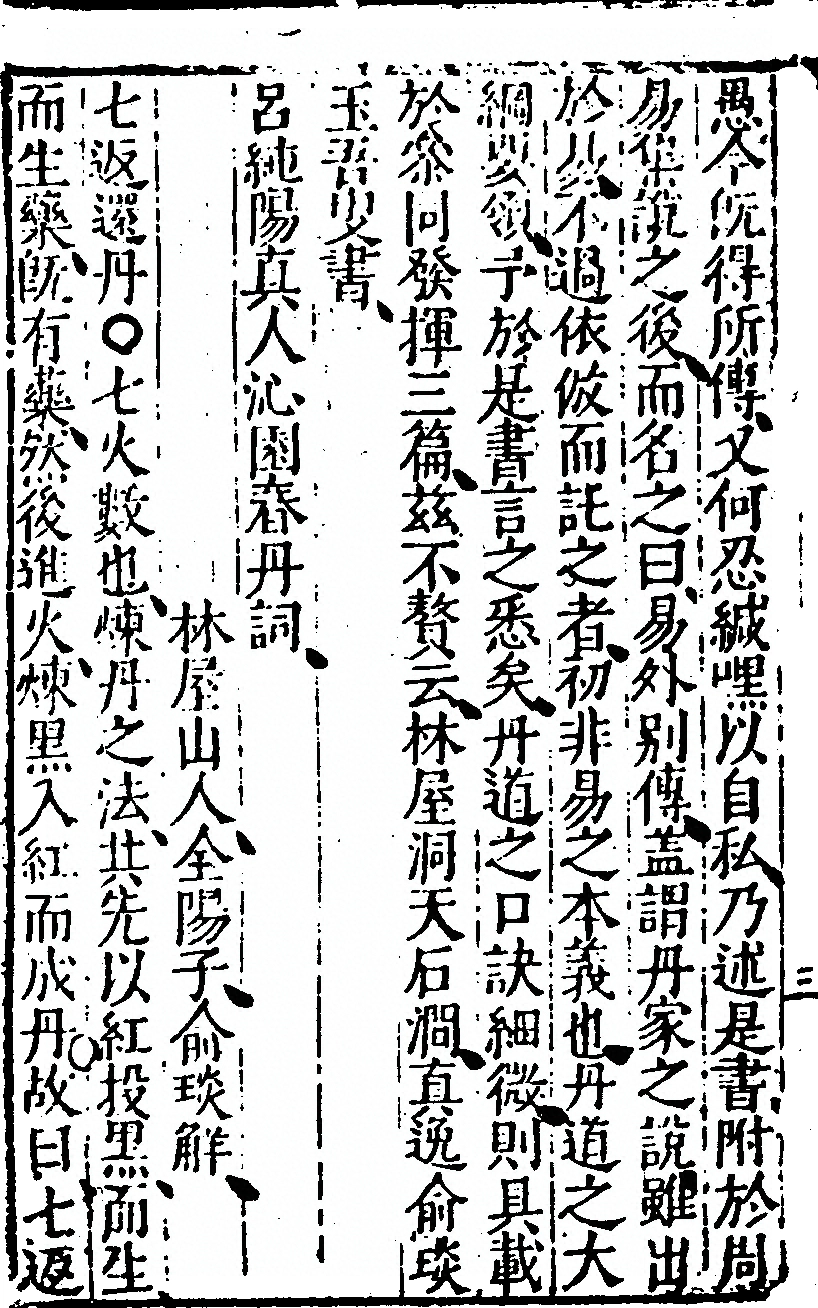 愚今旣得所傳又何忍緘嘿以自私乃述是書附於周
易集說之後而名之曰易外別傳盖謂丹家之說雖出
於易不過依倣而託之者初非易之本義也丹道之大
綱要領予於是書言之悉矣丹道之口訣細微則具載
於叅同發揮三篇茲不贅云林屋洞天石澗真逸俞琰
玉吾叟書
呂純陽真人沁園春丹詞
林屋山人全陽子俞琰解
七返還丹〇七火數也煉丹之法共先以紅投黑而生
而生藥旣有藥然後進火煉黑入紅而成丹故曰七返
三